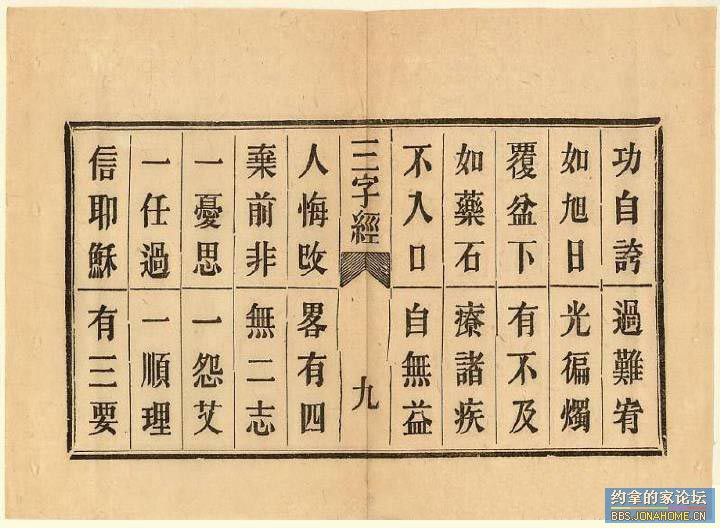 功自誇 過難宥
如旭日 光徧燭
覆盆下 有不及
如藥石 療諸疾
不入口 自無益
三字經 九
人悔改 畧有四
棄前非 無二志
一憂思 一怨艾
一任過 一順理
信耶穌 有三要
约拿的家论坛
BBS.JONAHOME.CN